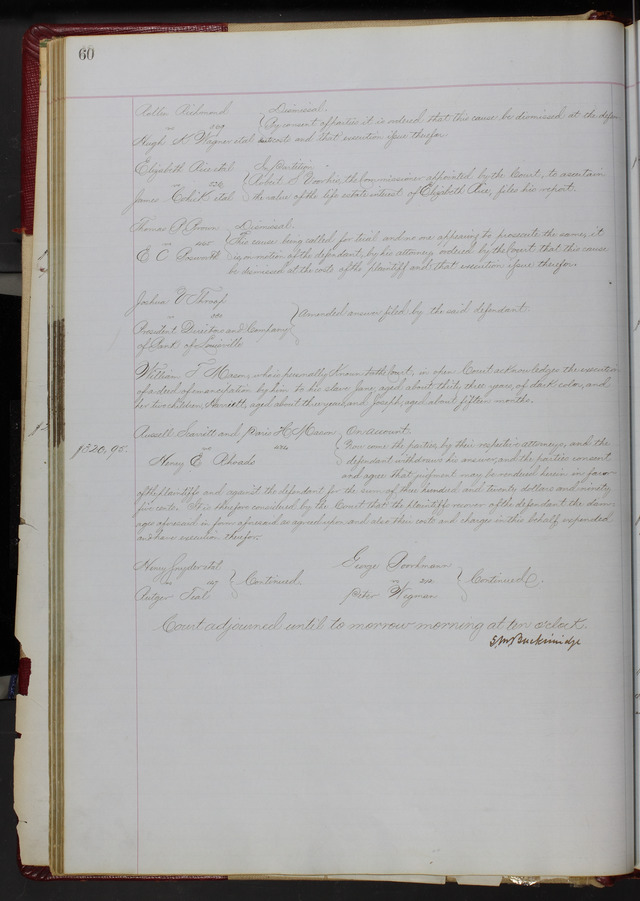 60
Richmond } Dismissal.
vs } By consent of parties it is ordered that this cause be dismissed at the
Hugh K. Wagner et al costs and that execution issue therefor
Elizabeth Rice et al } In Partition
vs } Robert S. Voorhis, the Commissioner appointed by the Court, to ascertain
James et al the value of the life estate interest of Elizabeth Rice, files his report.
Thomas P. Brown } Dismissal.
vs } This cause being called for trial and no one appearing to prosecute the same, it
E. C. is on motion of the defendant, by his attorney ordered by the Court that this cause
be dismissed at the costs of the plaintiff and that execution issue therefor
Joshua V. Throop
vs } Amended answer filed by the said defendant.
President Directors and Company
of Bank of Louisville
William T. Mason, who is personally known to the Court, in open Court acknowledges the execution
of a deed of emancipation by him to his slave Jane, aged about thirty three years, of dark color, and
her two children, Harriett, aged about three years, and Joseph, aged about fifteen months.
Russell Scarritt and H. Mason } On Account.
$320,95. vs } Now come the parties, by their respective attorneys, and the
Henry E. Rhoads defendant withdraws his answer, and the parties consent
and agree that judgment may be rendered herein in favor
of the plaintiffs and against the defendant for the sum of three hundred and twenty dollars and ninety
five cents. It is therefore considered by the Court that the plaintiffs recover of the defendant the dam-
ages aforesaid in form aforesaid as agreed upon and also their costs and charges in this behalf expended
and have execution therefor.
Henry Snyder et al George
vs } Continued vs } Continued.
Rutger Teal Peter Wigman
Court adjourned until to morrow morning at ten o'clock.